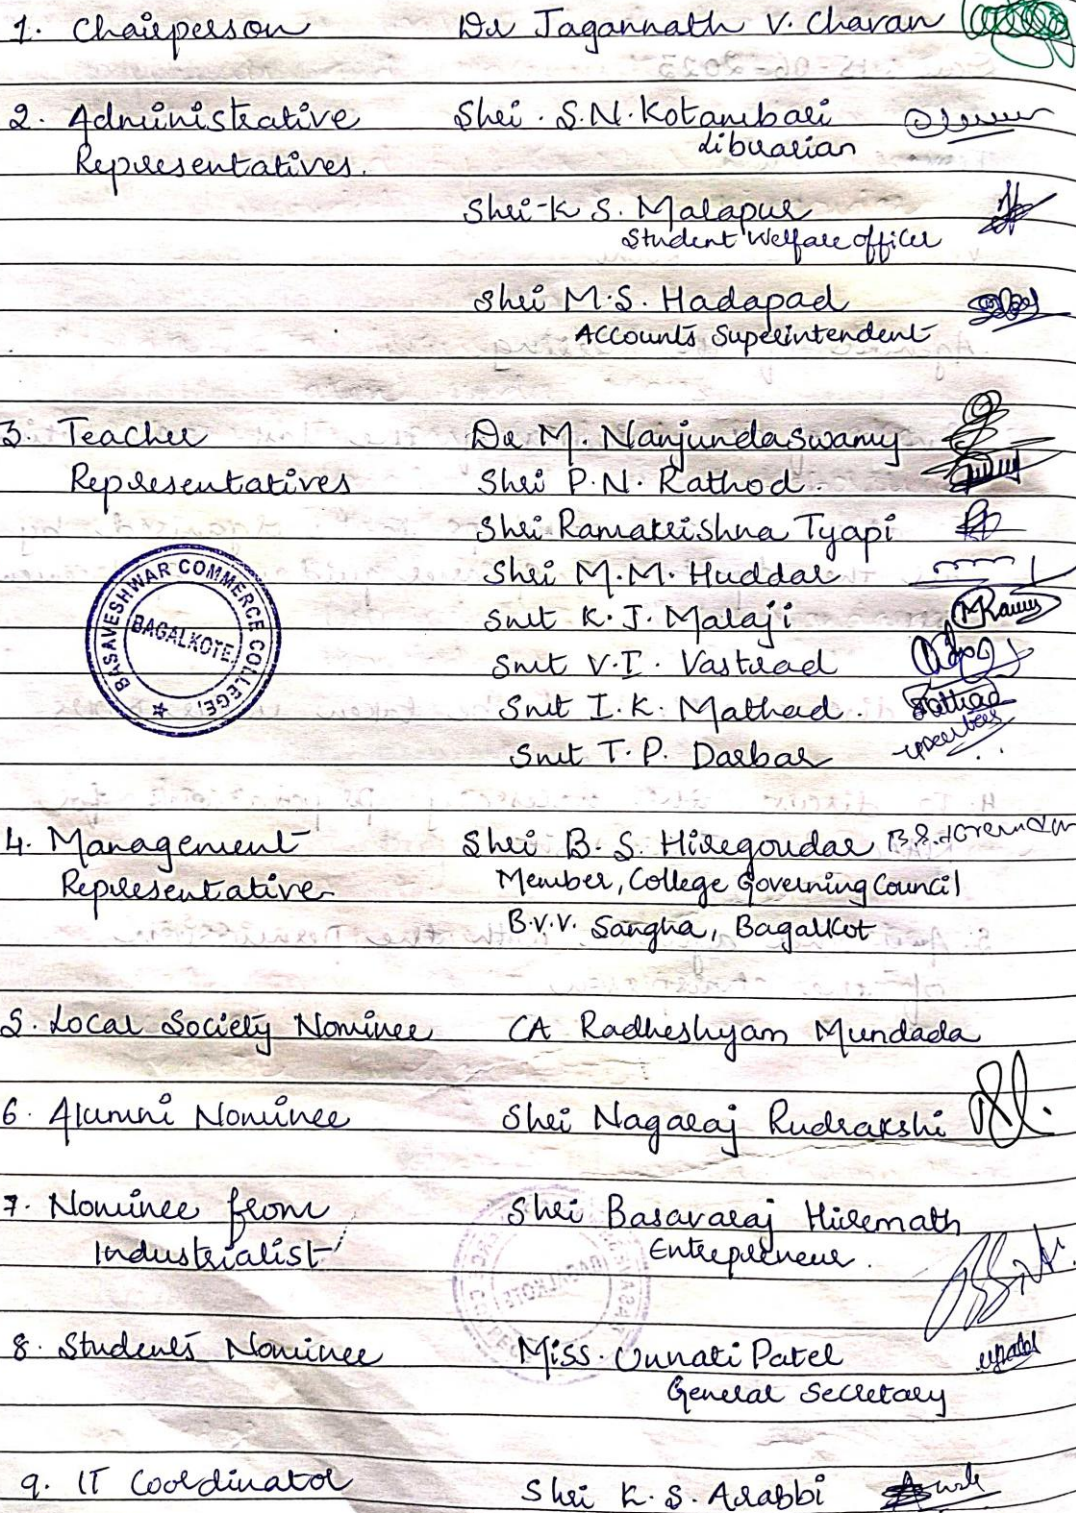 1. Chairperson Dr Jagannath V. Chavan
2. Administrative Shri. S.N. Kotambari
Representatives. Librarian
Shri K S. Malapur
Student Welfare officer
Shri M.S. Hadapad
Accounts Superintendent
3. Teacher Dr M. Nanjundaswamy
Representatives Shri P.N. Rathod.
Shri Ramakrishna Tyapi
Shri M.M. Huddar
Smt K. J. Malaji
Smt V.I. Vastrad
Smt I.K. Mathad.
Smt T.P. Darbar
BASAVESHWAR COMMERCE COLLEGE,
BAGALKOTE
4. Management Shri B. S. Hiregoudar
Representative Member, College Governing Council
B.V.V. Sangha, Bagalkot
5. Local Society Nominee CA Radheshyam Mundada
6. Alumni Nominee Shri Nagaraj Rudrakshi
7. Nominee from Shri Basavaraj Hiremath
Industrialist Entrepreneur.
8. Students Nominee Miss. Unnati Patel
General Secretary
9. IT Coordinator Shri K. S. Arabbi